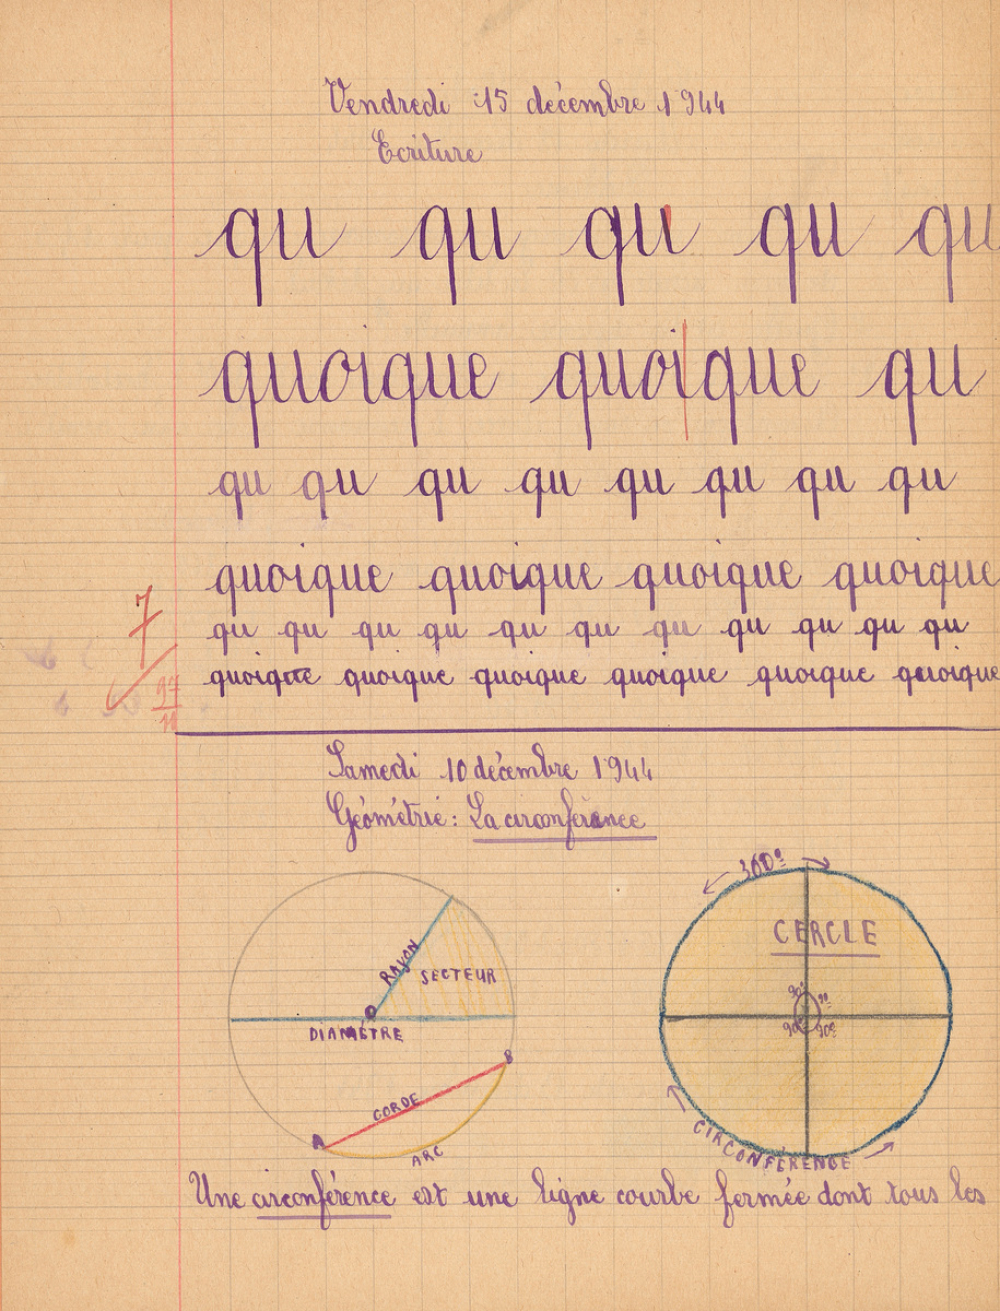 Vendredi 15 décembre 1944
Ecriture
qu qu qu qu qu
quoique quoique qu
qu qu qu qu qu qu qu qu
quoique quoique quoique quoique
7
qu qu qu qu qu qu qu qu qu qu qu
quoique quoique quoique quoique quoique quoique
Samedi 10 décembre 1944
Géométrie : La circonférence
360°
CERCLE
RAYON
SECTEUR
90° 90°
O
DIAMÈTRE
90° 90°
B
CORDE
A
ARC
CIRCONFÉRENCE
Une circonférence est une ligne courbe fermée dont tous les